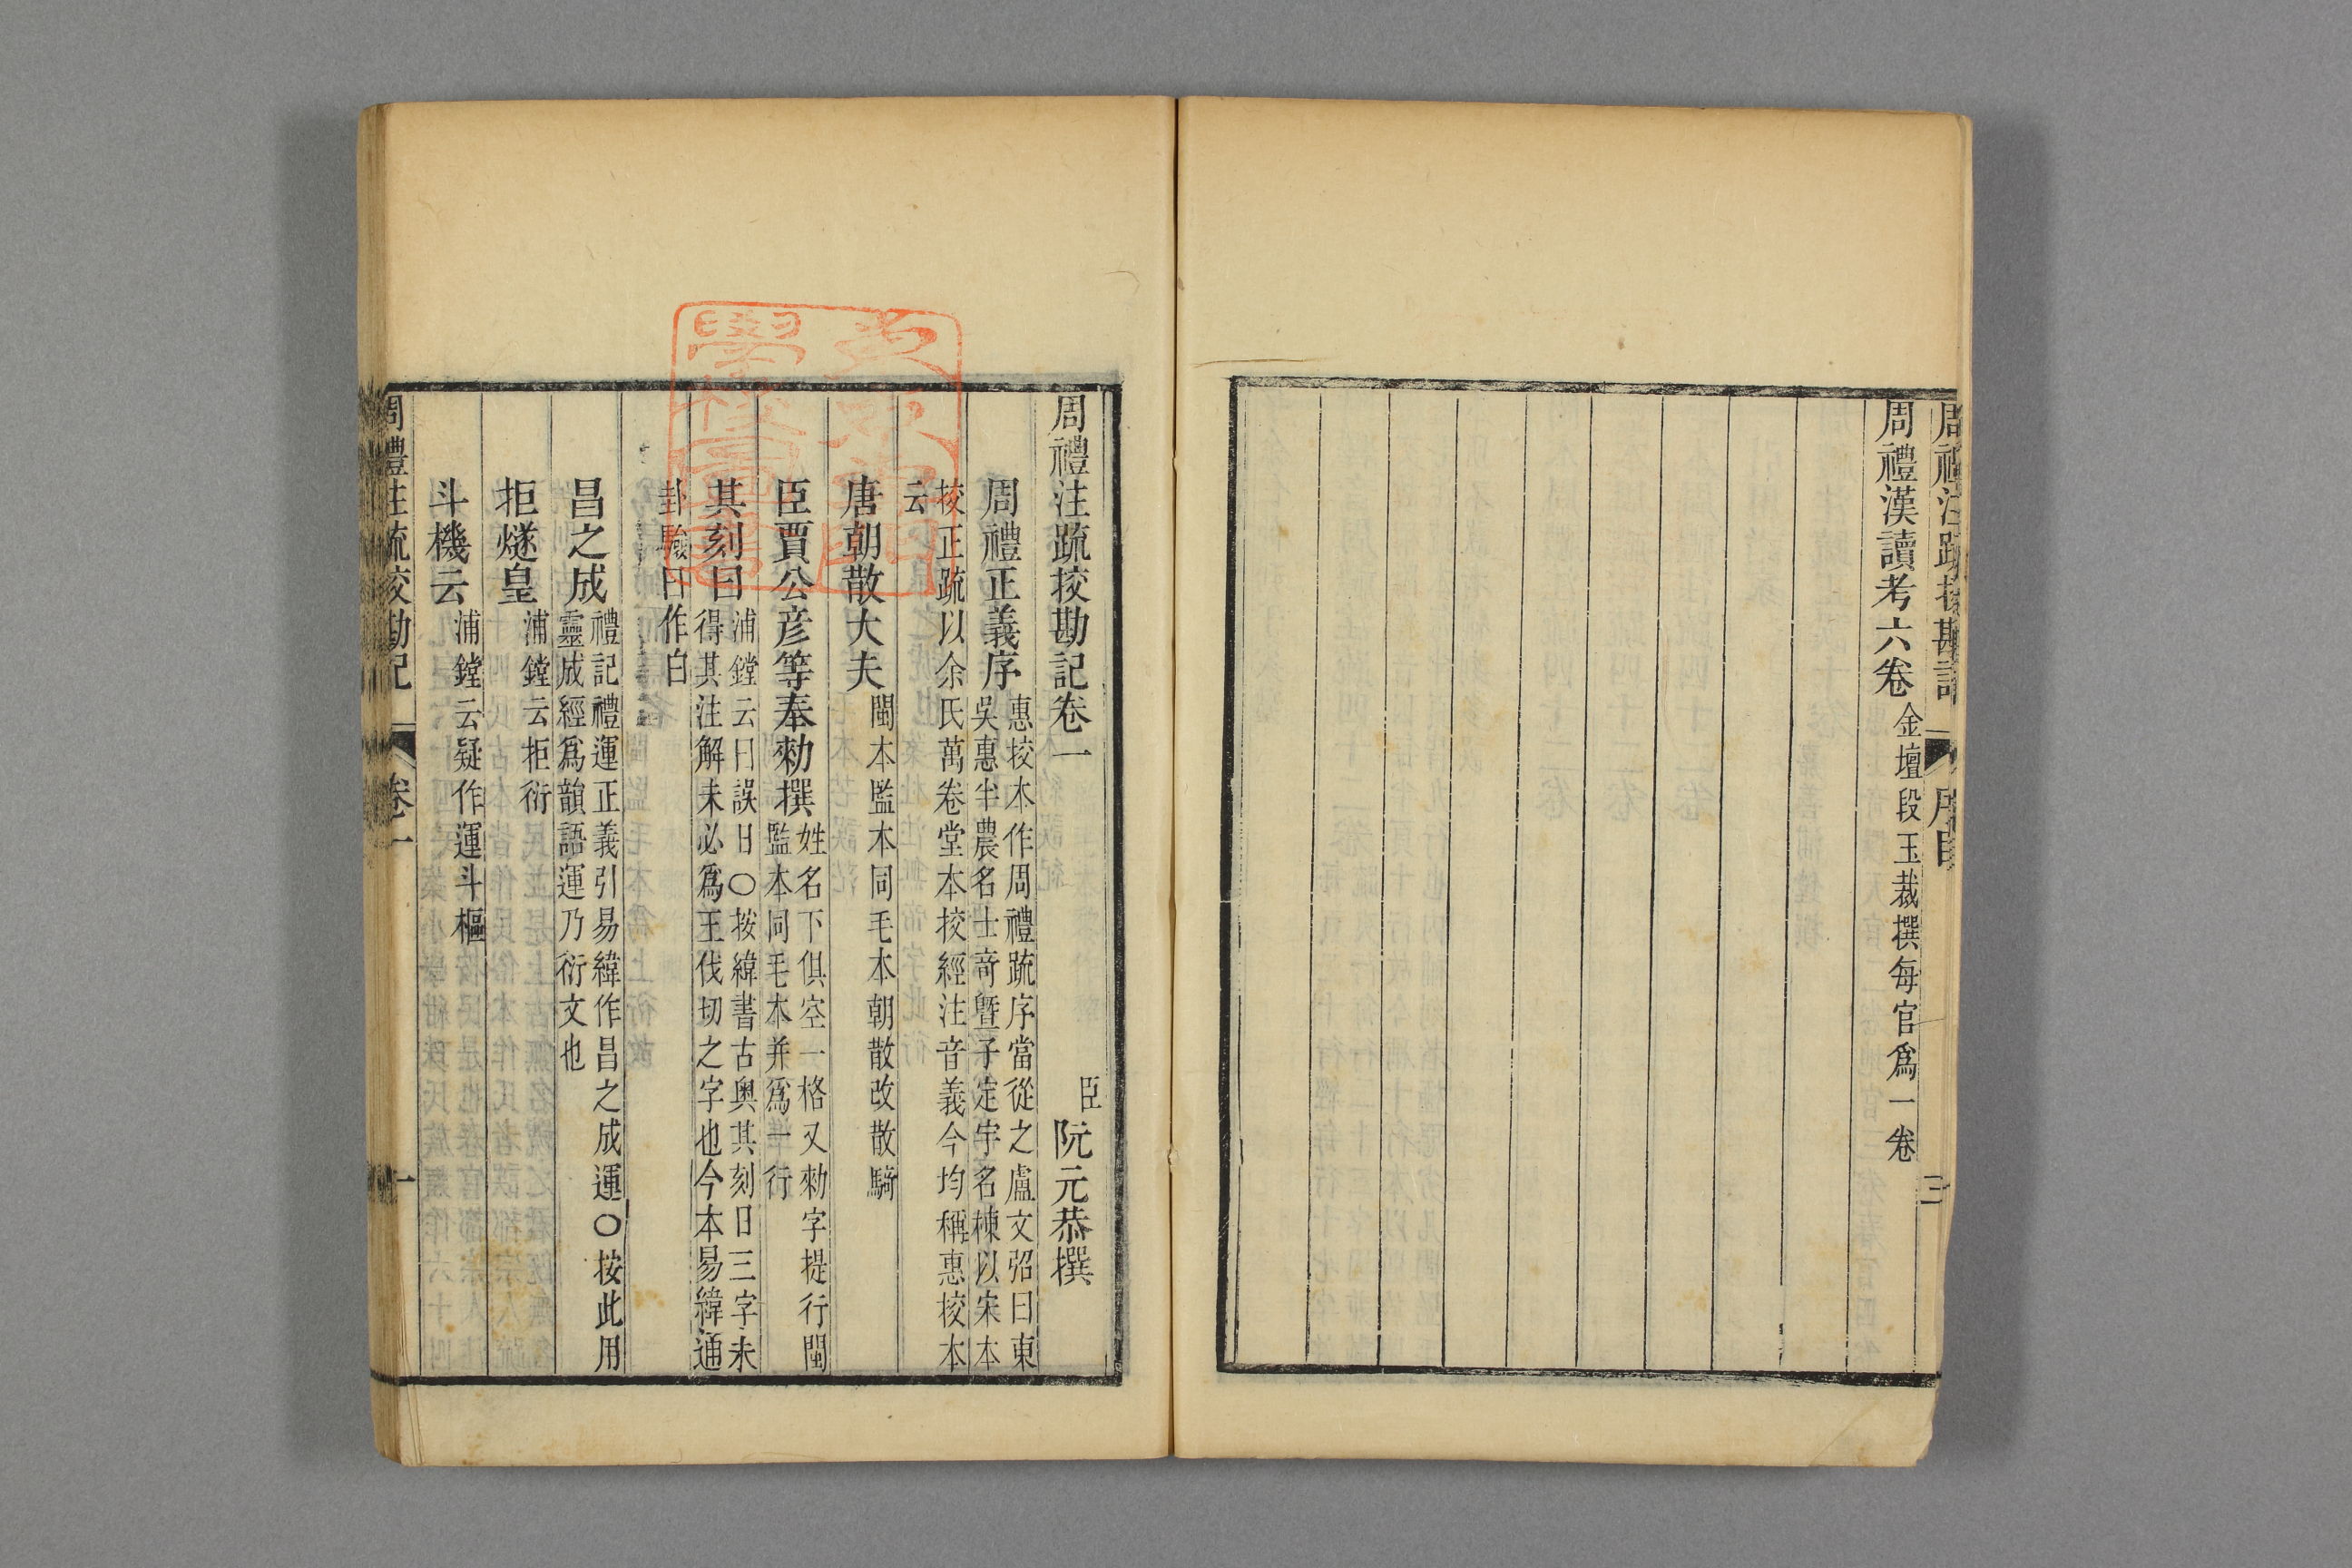 周禮漢讀考六卷金壇段玉裁撰每官爲一卷
三
周禮注疏挍勘記卷一
臣阮元恭撰
周禮正義序惠挍本作周禮疏序當從之盧文弨曰東
吳惠半農名士奇曁子定宇名棟以宋本
挍正疏以余氏萬卷堂本挍經注音義今均稱惠挍本
云
唐朝散大夫閩本監本同毛本朝散改散騎
臣賈公彦等奉勑撰姓名下俱空一格又勑字提行閩
監本同毛本并爲一行
其刻曰浦鏜云曰誤日○按緯書古奥其刻日三字未
得其注解未必爲王伐切之字也今本易緯通
卦驗日作白
昌之成禮記禮運正義引易緯作昌之成運○按此用
靈成經爲韻語運乃衍文也
拒燧皇浦鏜云拒衍
斗機云浦鏜云疑作運斗樞
周禮注疏挍勘記 卷一 一